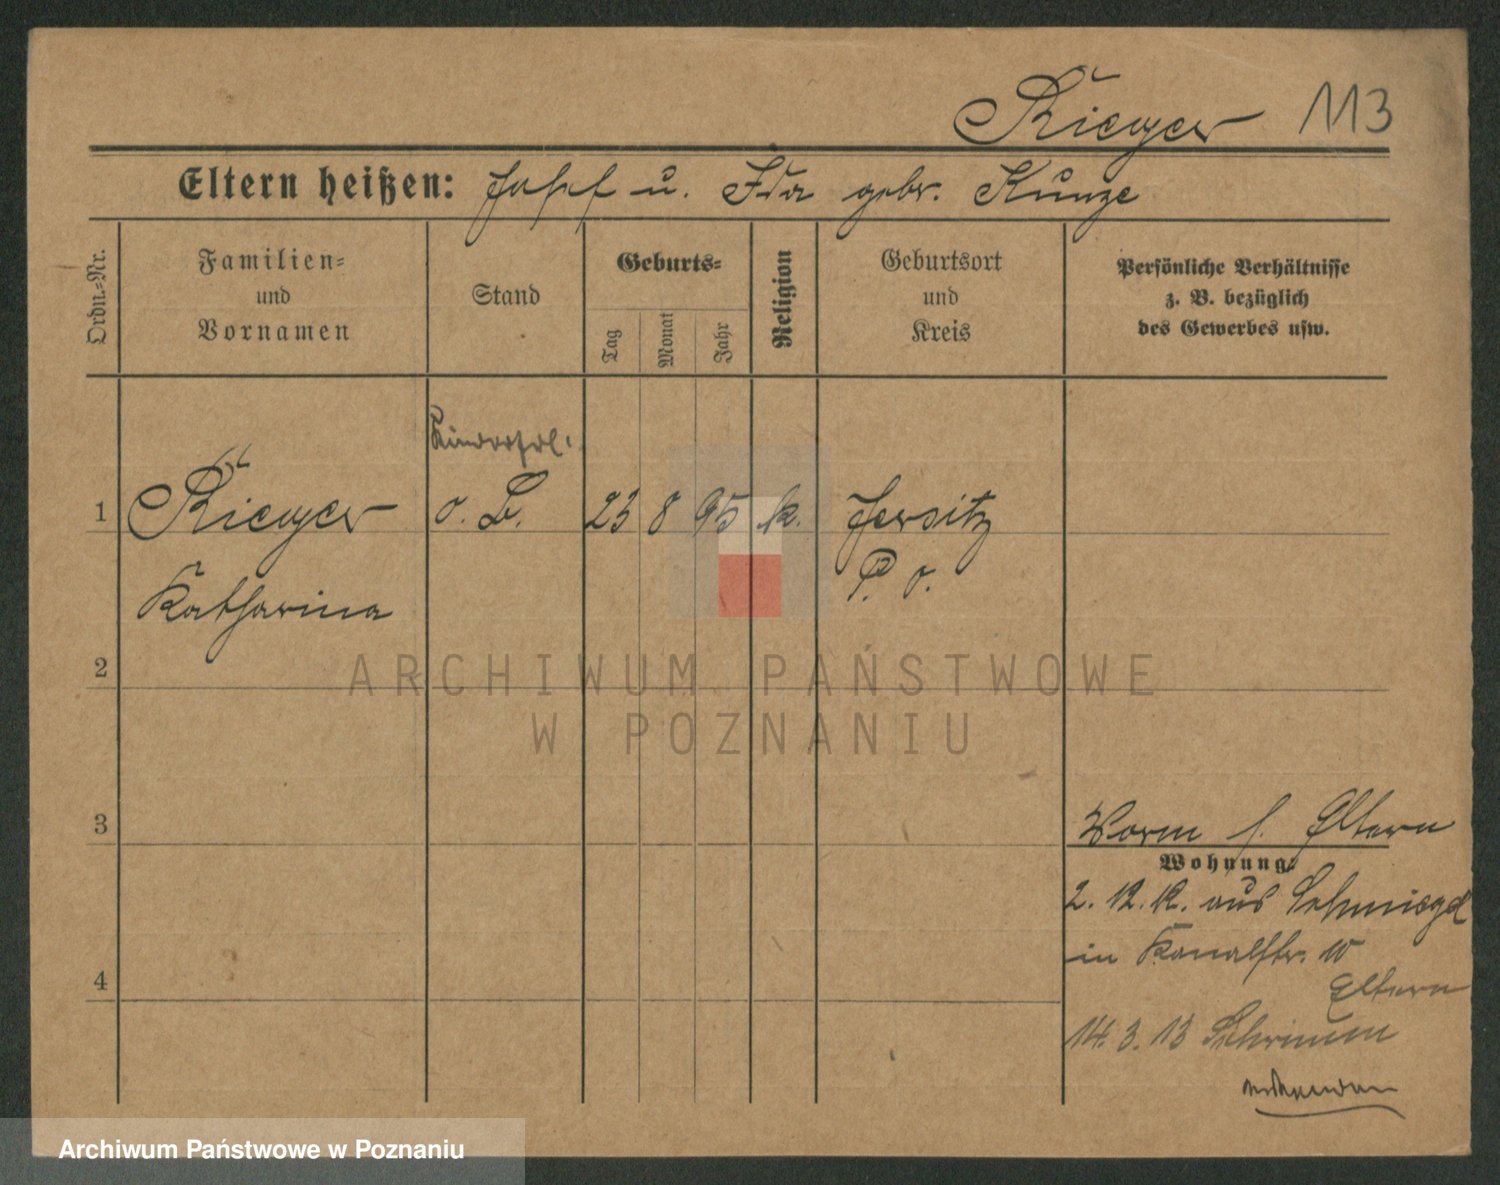 Rieger 113
Eltern heißen: Josef u. Ida gebr. Kunze
Ordn.-Nr.
Familien-
und
Vornamen
Stand
Geburts-
Tag
Monat
Jahr
Religion
Geburtsort
und
Kreis
Persönliche Verhältnisse
z. B. bezüglich
des Gewerbes usw.
Kinderfrl.
1 Rieger o. B. 23 8 95 k. Jersitz
Katharina P. o.
2
ARCHIWUM PAŃSTWOWE
W POZNANIU
3
Vorm f. Eltern
Wohnung:
2. 12. 12. aus Schmiegel
in Kanalstr. 10
4
Eltern
14. 3. 13 Schrimm
Archiwum Państwowe w Poznaniu